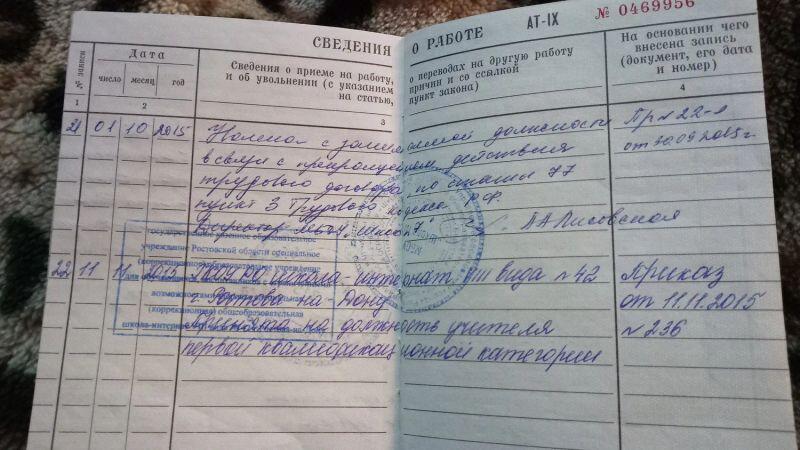 СВЕДЕНИЯ О РАБОТЕ
АТ-IX № 0469956
№ записи
Дата
число месяц год
Сведения о приеме на работу,
и об увольнении (с указанием
на статью,
о переводах на другую работу
причин и со ссылкой
пункт закона)
На основании чего
внесена запись
(документ, его дата
и номер)
1 2 3 4
21 01 10 2015 Уволена с занимаемой должности
в связи с прекращением действия
трудового договора, по статьи 77
пункт 3 Трудового кодекса РФ.
Директор МБОУ
Пр № 22-л
от 30.09.2015г.
государственное казенное образовательное
учреждение Ростовской области специальное
(коррекционное) образовательное учреждение
возможностями
(коррекционная) общеобразовательная
школа-интернат
22 11 11 2015 школа-интернат VIII вида № 42
г. Ростова на Дону
Принята на должность учителя
первой квалификационной категории
Приказ
от 11.11.2015
№ 236